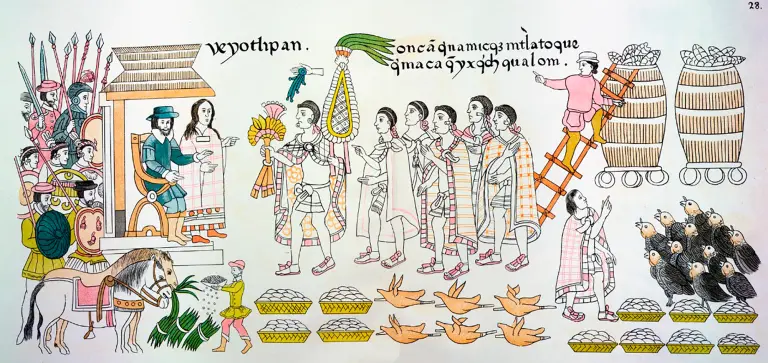 28.
yeyotlipan.
oncā q̄namicqȝ intl̀atoque
q̄maca q̄ yxq̄ch qualoni.